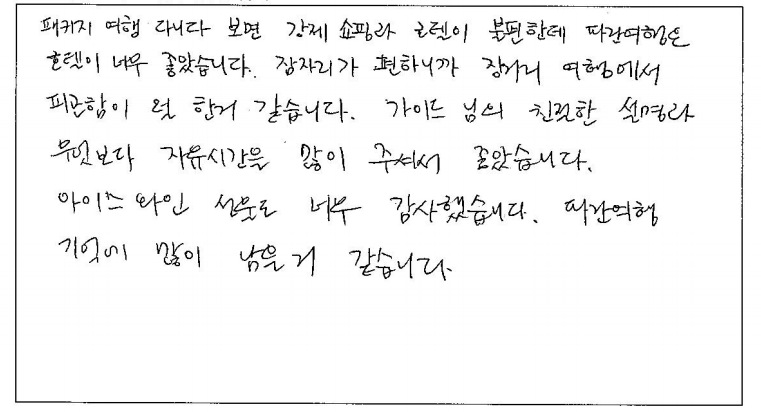 패키지 여행 다니다 보면 강제 쇼핑과 호텔이 불편한데 따간여행은
호텔이 너무 좋았습니다. 잠자리가 편하니까 장거리 여행에서
피곤함이 덜 한거 같습니다. 가이드 님의 친절한 설명과
무엇보다 자유시간을 많이 주셔서 좋았습니다.
아이스 와인 선물도 너무 감사했습니다. 따간여행
기억에 많이 남을거 같습니다.